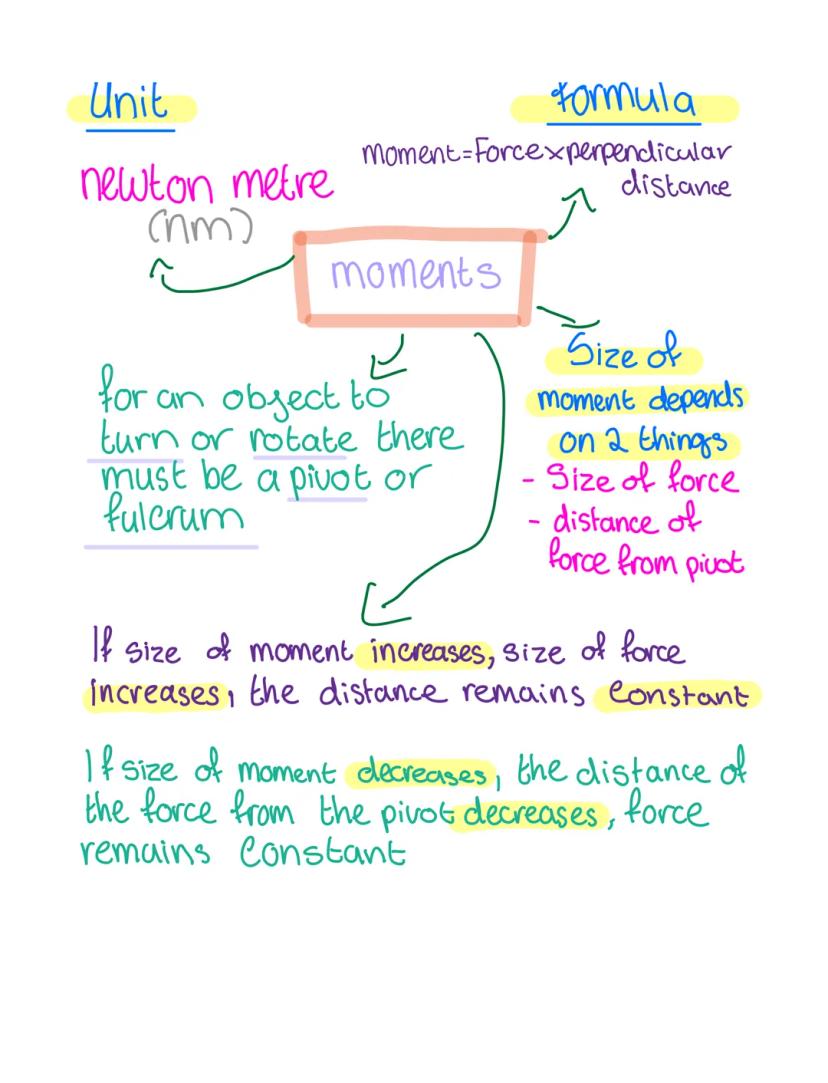 Unit
newton metre
(nm)
formula
moment=Force×perpendicular
distance
moments
for an object to
turn or rotate there
must be a pivot or
fulcrum
Size of
moment depends
on 2 things
- Size of force
- distance of
force from pivot
If size of moment increases, size of force
increases, the distance remains constant
If size of moment decreases, the distance of
the force from the pivot decreases, force
remains constant